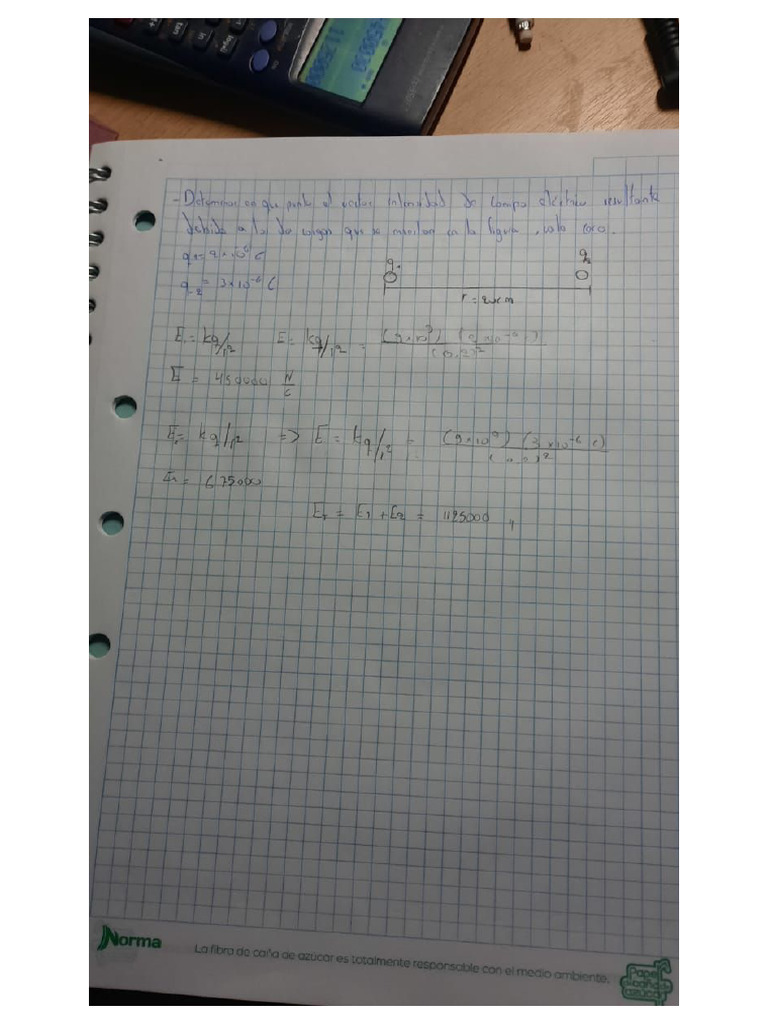 - Determinar en que punto el vector intensidad de campo eléctrico resultante
debido a las dos cargas que se muestran en la figura, vale cero.
q1 = 2x10⁻⁶ C
q2 = 3x10⁻⁶ C
q1
q2
r = 20cm
E1 = kq/r² E = kq/r² = (9x10⁹) (2x10⁻⁶ C) / (0,2)²
E = 450000 N/C
E2 = kq/r² => E = kq/r² = (9x10⁹) (3x10⁻⁶ C) / (0,2)²
E2 = 675000
Er = E1 + E2 = 1125000
Norma
La fibra de caña de azúcar es totalmente responsable con el medio ambiente.
Papel de caña de azúcar